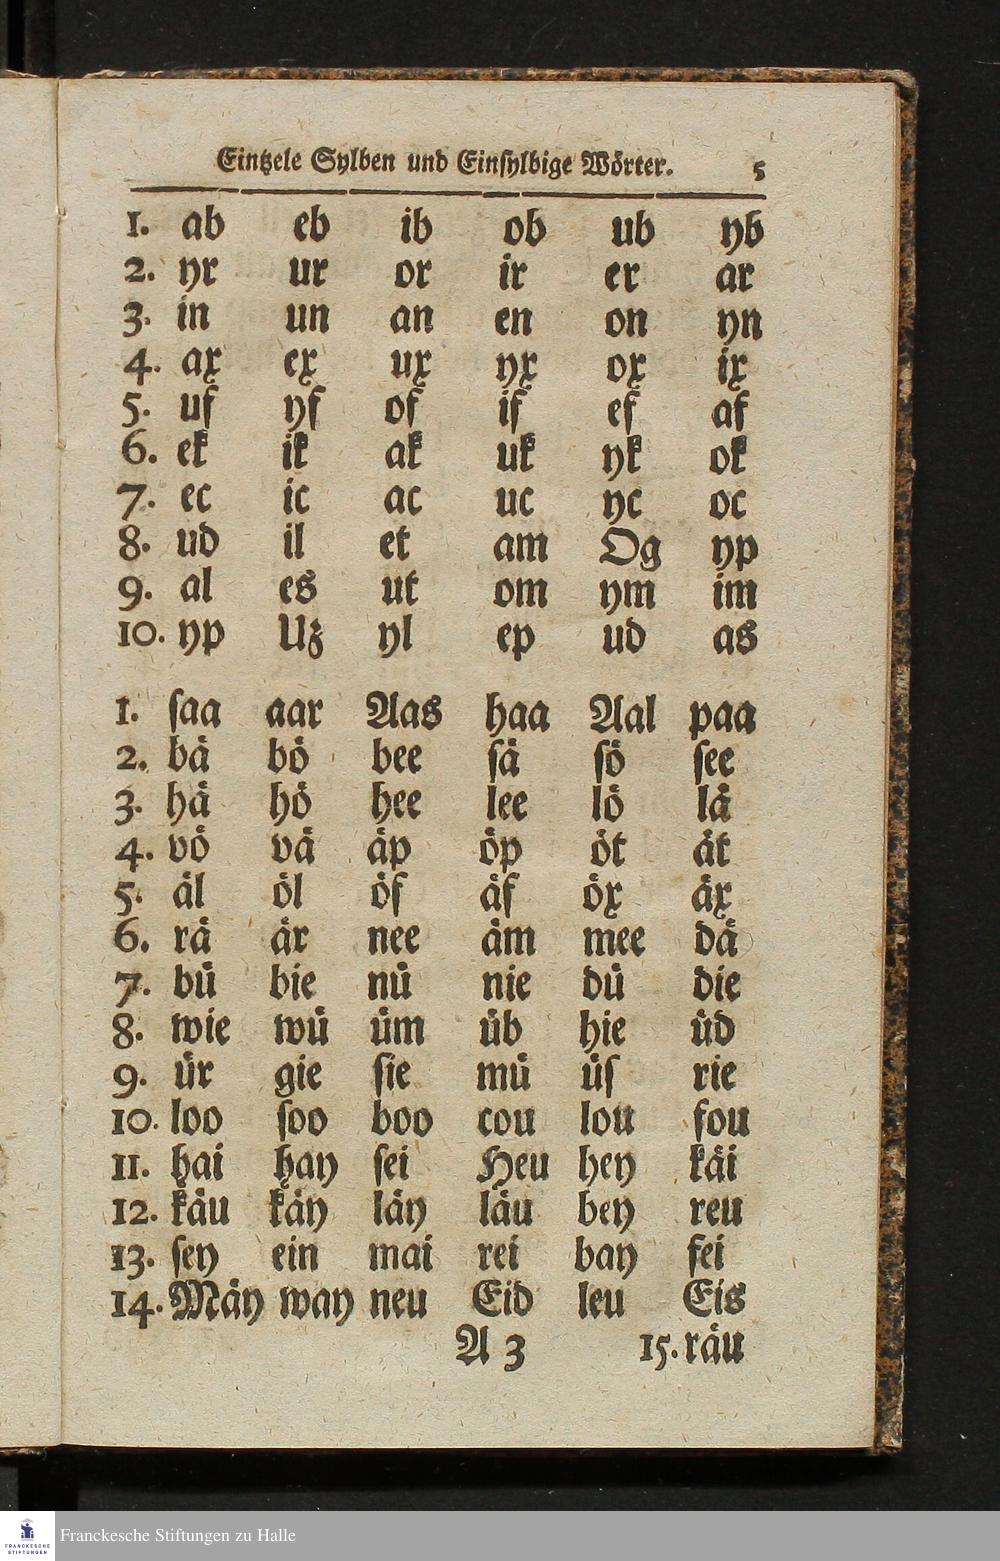 Eintzele Sylben und Einſylbige Wörter. 5
1. ab eb ib ob ub yb
2. yr ur or ir er ar
3. in un an en on yn
4. ax ex ux yx ox ix
5. uf yf of if ef af
6. ek ik ak uk yk ok
7. ec ic ac uc yc oc
8. ud il et am Og yp
9. al es ut om ym im
10. yp Uz yl ep ud as
1. ſaa aar Aas haa Aal paa
2. bä bö bee ſä ſö ſee
3. hä hö hee lee lö lä
4. vö vä äp öp öt ät
5. äl öl öf äf öx äx
6. rä är nee äm mee dä
7. bü bie nü nie dü die
8. wie wü üm üb hie üd
9. ür gie ſie mü üſ rie
10. loo ſoo boo cou lou fou
11. hai hay ſei Heu hey käi
12. käu käy läy läu bey reu
13. ſey ein mai rei bay fei
14. Mäy way neu Eid leu Eis
A 3 15. räu
Franckesche Stiftungen zu Halle
FRANCKESCHE
STIFTUNGEN